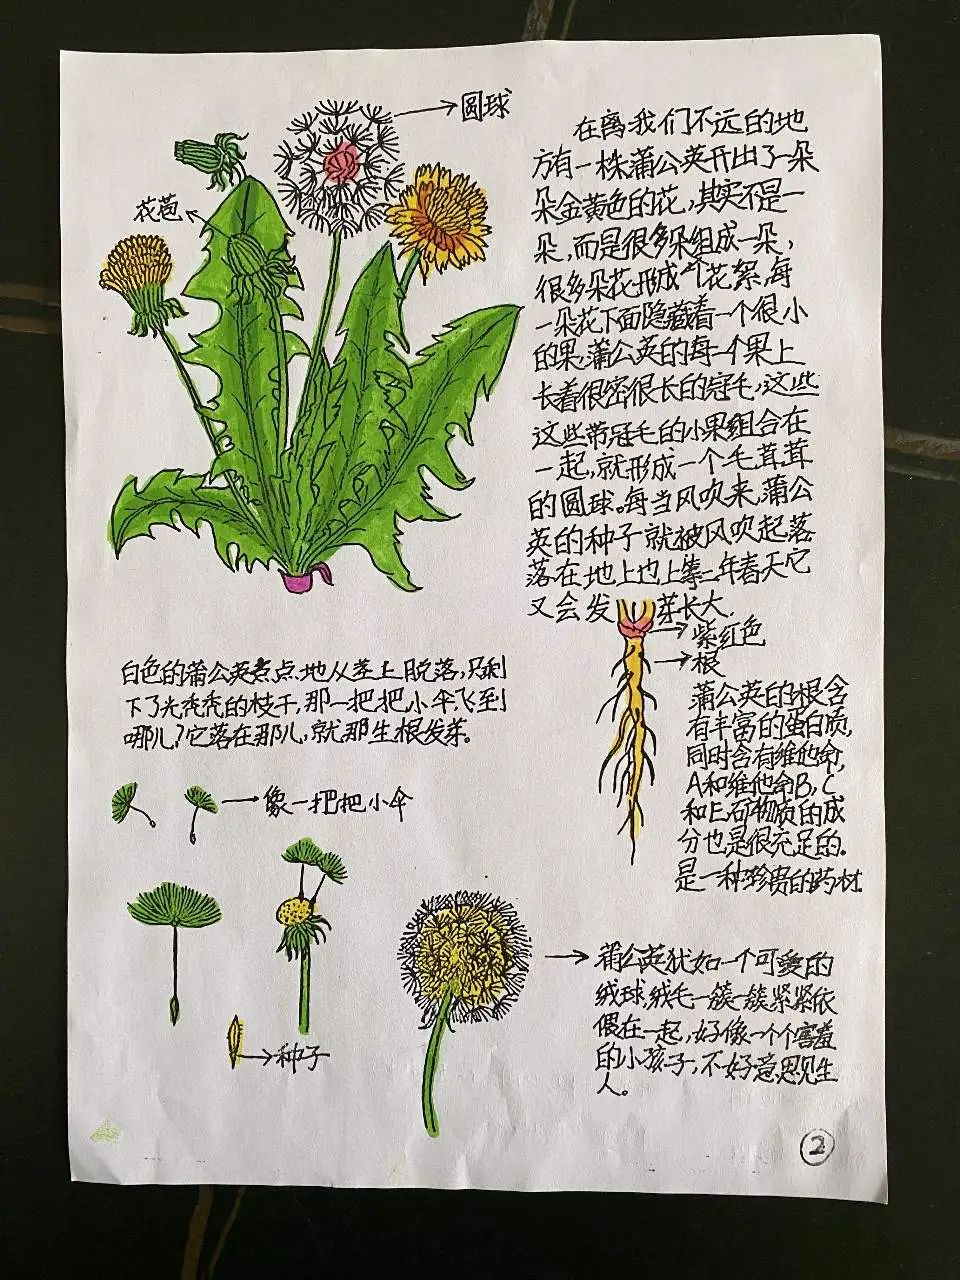 圆球
花苞
在离我们不远的地
方有一株蒲公英开出了一朵
朵金黄色的花,其实不是一
朵,而是很多朵组成一朵,
很多朵花形成个花絮,每
一朵花下面隐藏着一个很小
的果.蒲公英的每一个果上
长着很密很长的冠毛,这些
这些带冠毛的小果组合在
一起,就形成一个毛茸茸
的圆球。每当风吹来,蒲公
英的种子就被风吹起落
落在地上也上第二年春天它
又会发芽长大.
紫红色
根
蒲公英的根含
有丰富的蛋白质,
同时含有维他命,
A和维他命B,C
和E,矿物质的成
分也是很充足的.
是一种珍贵的药材.
白色的蒲公英点地从茎上脱落,只剩
下了光秃秃的枝干,那一把把小伞飞到
哪儿?它落在那儿,就那生根发芽。
像一把把小伞
种子
蒲公英犹如一个可爱的
绒球,绒毛一簇一簇紧紧依
偎在一起,好像一个个害羞
的小孩子,不好意思见生
人。
2